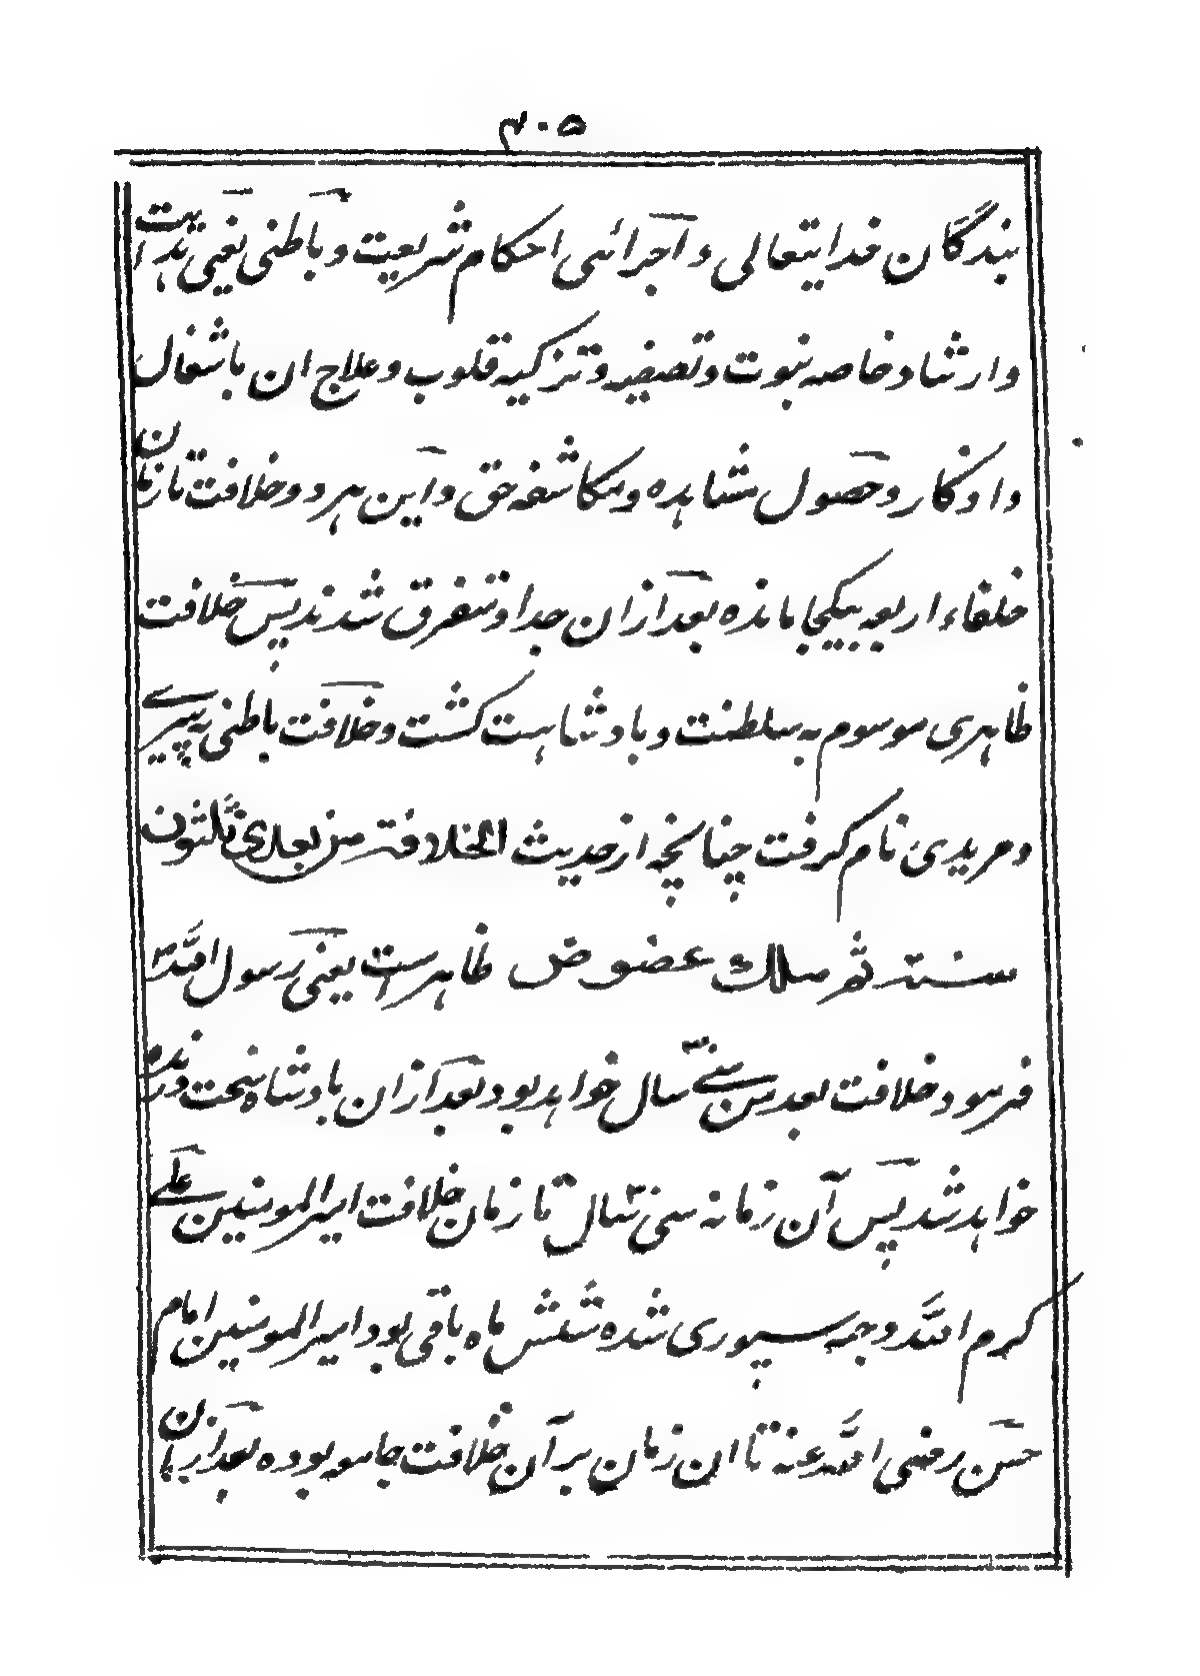 ۳۰۵
بندگان خدایتعالی و اجرائی احکام شریعت و باطنی یعنی هدایت
و ارشاد و خاصه نبوت و تصفیه و تزکیه قلوب و علاج ان باشغال
و اذکار و حصول مشاهده و مکاشفه حق و این هر دو خلافت تا زمان
خلفاء اربعه بیکجا مانده بعد ازان جدا و متفرق شدند پس خلافت
ظاهری موسوم به سلطنت و بادشاهت گشت و خلافت باطنی به پیرے
و مریدی نام گرفت چنانچه از حدیث الخلافة من بعدی ثلثون
سنة ثم ملك عضوض ظاهرست یعنی رسول الله ؐ
فرمود خلافت بعد من سی سال خواهد بود بعد ازان بادشاه سخت درنده
خواهد شد پس آن زمانه سی سال تا زمان خلافت امیر المومنین علی
کرم الله وجهه سپوری شده شش ماه باقی بود امیر المومنین امام
حسن رضی الله عنه تا ان زمان بر آن خلافت جامعه بوده بعد ازان